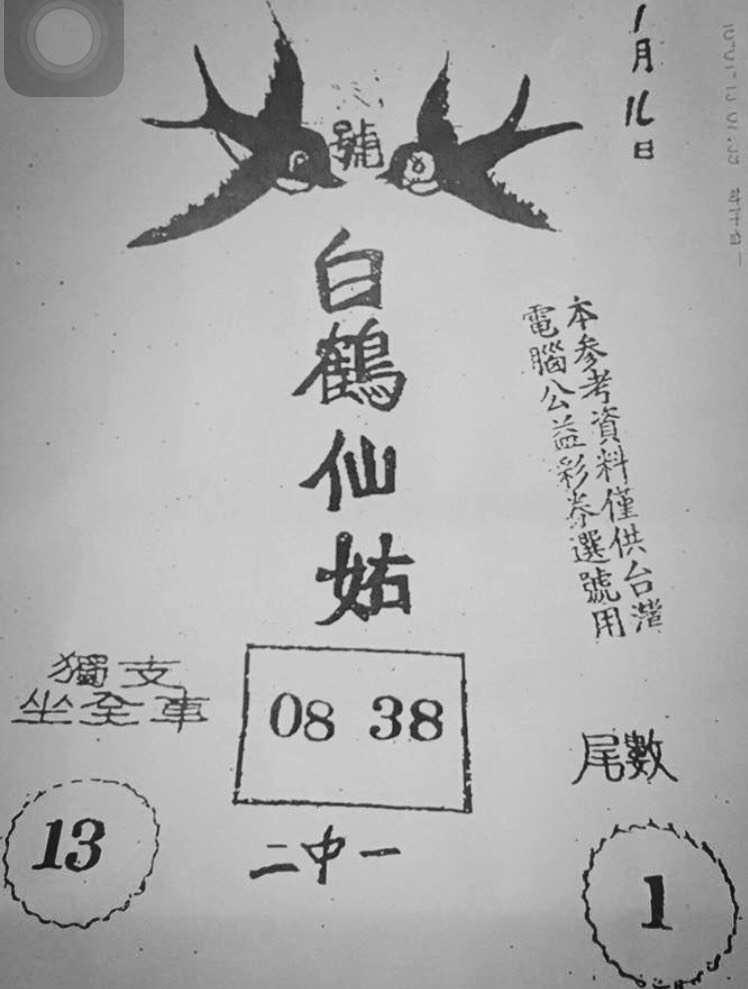 1月16日
號
白鶴仙姑
本參考資料僅供台灣
電腦公益彩券選號用
獨支
坐全車
08 38
尾數
13
二中一
1